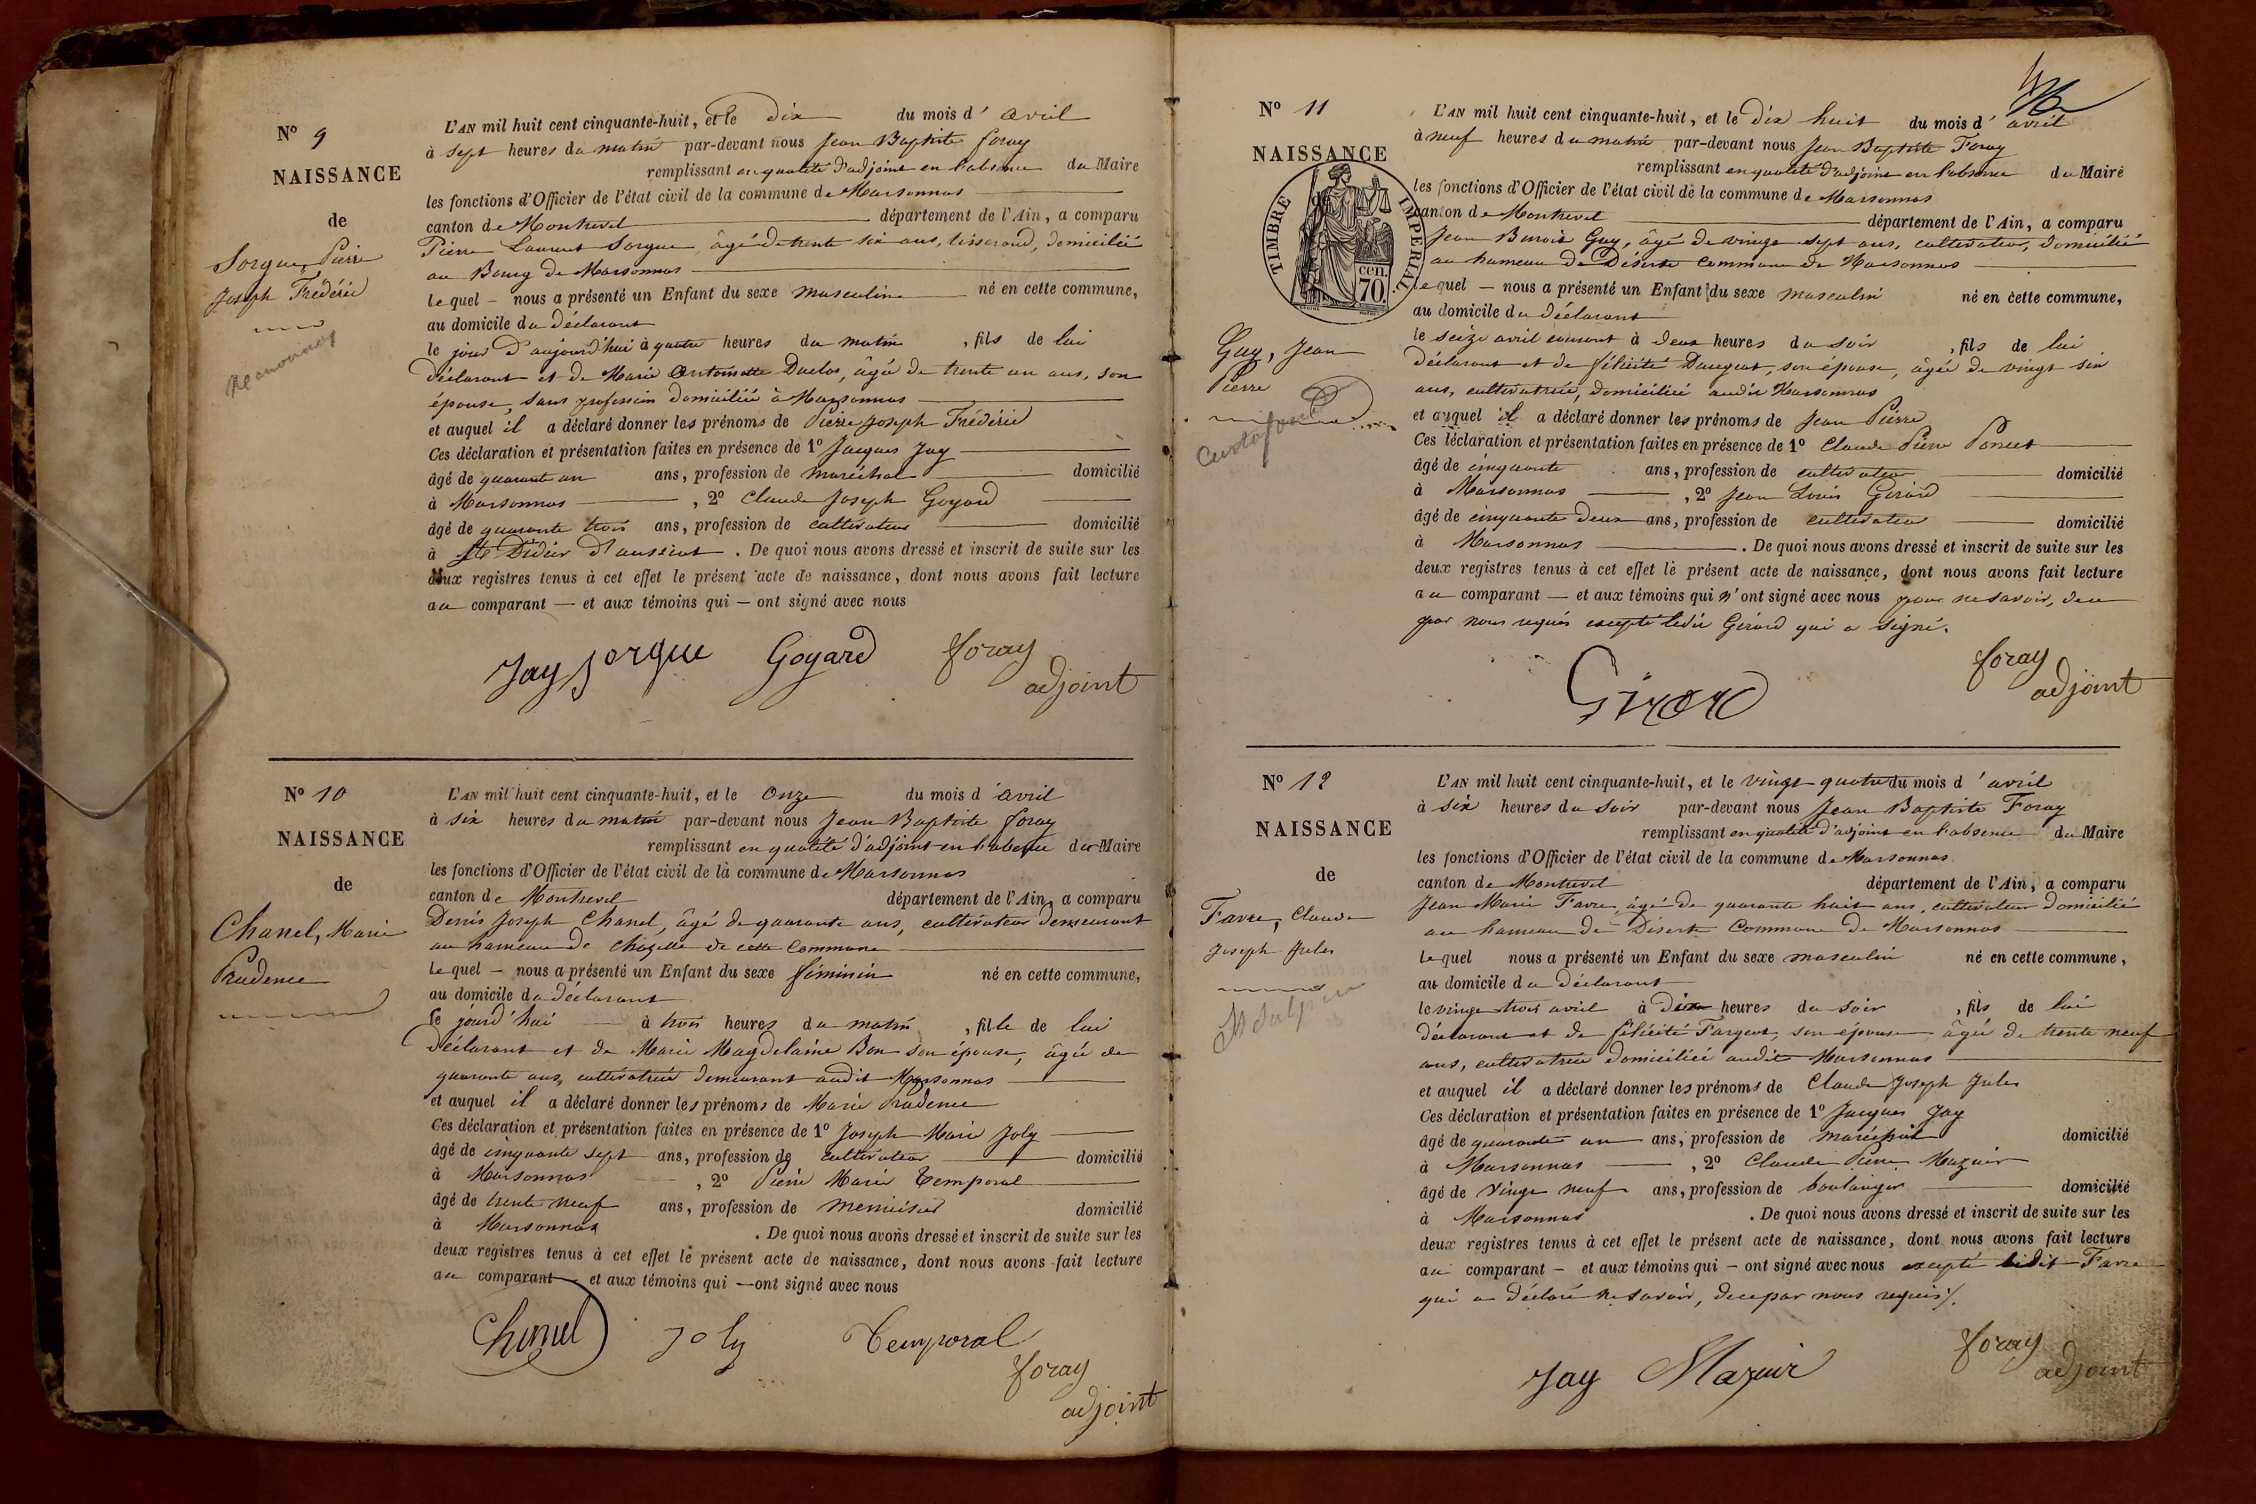 Nº 9
NAISSANCE
de
Sorgue, Pierre
Joseph Frédéric
L'AN mil huit cent cinquante-huit, et le dix du mois d' avril
à sept heures du matin par-devant nous Jean Baptiste foray
remplissant en qualité d'adjoint en l'absence du Maire
les fonctions d'Officier de l'état civil de la commune de Marsonnas
canton de Montrevel département de l'Ain, a comparu
Pierre Laurent Sorgue, âgé de trente six ans, tisserand, domicilié
au Bourg de Marsonnas
lequel – nous a présenté un Enfant du sexe masculin né en cette commune,
au domicile du déclarant
le jour d'aujourd'hui à quatre heures du matin , fils de lui
déclarant et de Marie Antoinette Duclos, âgée de trente un ans, son
épouse, sans profession domiciliée à Marsonnas
et auquel il a déclaré donner les prénoms de Pierre Joseph Frédéric
Ces déclaration et présentation faites en présence de 1º Jacques Jay
âgé de quarante un ans, profession de maréchal domicilié
à Marsonnas , 2º Claude Joseph Goyard
âgé de quarante trois ans, profession de cultivateur domicilié
à St Didier d'aussiat . De quoi nous avons dressé et inscrit de suite sur les
deux registres tenus à cet effet le présent acte de naissance, dont nous avons fait lecture
au comparant — et aux témoins qui – ont signé avec nous
Jay Sorgue Goyard foray
adjoint
Nº 10
NAISSANCE
de
Chanel, Marie
Prudence
L'AN mil huit cent cinquante-huit, et le onze du mois d' avril
à six heures du matin par-devant nous Jean Baptiste foray
remplissant en qualité d'adjoint en l'absence du Maire
les fonctions d'Officier de l'état civil de la commune de Marsonnas
canton de Montrevel département de l'Ain, a comparu
Denis Joseph Chanel, âgé de quarante ans, cultivateur demeurant
au hameau de Chazelle de cette Commune
lequel – nous a présenté un Enfant du sexe féminin né en cette commune,
au domicile du déclarant
le jourd'hui à trois heures du matin , fille de lui
déclarant et de Marie Magdelaine Bon son épouse, âgée de
quarante ans, cultivatrice demeurant audit Marsonnas
et auquel il a déclaré donner les prénoms de Marie Prudence
Ces déclaration et présentation faites en présence de 1º Joseph Marie Joly
âgé de cinquante sept ans, profession de cultivateur domicilié
à Marsonnas , 2º Pierre Marie Temporal
âgé de trente neuf ans, profession de menuisier domicilié
à Marsonnas . De quoi nous avons dressé et inscrit de suite sur les
deux registres tenus à cet effet le présent acte de naissance, dont nous avons fait lecture
au comparant et aux témoins qui — ont signé avec nous
Chanel Joly Temporal
foray
adjoint
Nº 11
NAISSANCE
TIMBRE IMPERIAL
70 cen.
Guy, Jean
Pierre
L'AN mil huit cent cinquante-huit, et le dix huit du mois d' avril
à neuf heures du matin par-devant nous Jean Baptiste Foray
remplissant en qualité d'adjoint en l'absence du Maire
les fonctions d'Officier de l'état civil de la commune de Marsonnas
canton de Montrevel département de l'Ain, a comparu
Jean Benoit Guy, âgé de vingt sept ans, cultivateur, domicilié
au hameau de Déserte Commune de Marsonnas
lequel — nous a présenté un Enfant du sexe masculin né en cette commune,
au domicile du déclarant
le seize avril courant à deux heures du soir , fils de lui
déclarant et de félicité Daugeat, son épouse, âgée de vingt six
ans, cultivatrice, domiciliée audit Marsonnas
et auquel il a déclaré donner les prénoms de Jean Pierre
Ces déclaration et présentation faites en présence de 1º Claude Pierre Poncet
âgé de cinquante ans, profession de cultivateur domicilié
à Marsonnas , 2º Jean Louis Girard
âgé de cinquante deux ans, profession de cultivateur domicilié
à Marsonnas . De quoi nous avons dressé et inscrit de suite sur les
deux registres tenus à cet effet le présent acte de naissance, dont nous avons fait lecture
au comparant — et aux témoins qui n'ont signé avec nous pour ne savoir, de ce
par nous requis excepté ledit Girard qui a signé.
Girard
foray
adjoint
Nº 12
NAISSANCE
de
Favre, Claude
Joseph Jules
L'AN mil huit cent cinquante-huit, et le vingt quatre du mois d' avril
à six heures du soir par-devant nous Jean Baptiste Foray
remplissant en qualité d'adjoint en l'absence du Maire
les fonctions d'Officier de l'état civil de la commune de Marsonnas
canton de Montrevel département de l'Ain, a comparu
Jean Marie Favre, âgé de quarante huit ans, cultivateur domicilié
au hameau de Déserte Commune de Marsonnas
lequel nous a présenté un Enfant du sexe masculin né en cette commune,
au domicile du déclarant
le vingt trois avril à dix heures du soir , fils de lui
déclarant et de félicité Fargeat, son épouse âgée de trente neuf
ans, cultivatrice domiciliée audit Marsonnas
et auquel il a déclaré donner les prénoms de Claude Joseph Jules
Ces déclaration et présentation faites en présence de 1º Jacques Jay
âgé de quarante un ans, profession de maréchal domicilié
à Marsonnas , 2º Claude Pierre Mazuir
âgé de vingt neuf ans, profession de boulanger domicilié
à Marsonnas . De quoi nous avons dressé et inscrit de suite sur les
deux registres tenus à cet effet le présent acte de naissance, dont nous avons fait lecture
au comparant – et aux témoins qui – ont signé avec nous excepté ledit Favre
qui a déclaré ne savoir, de ce par nous requis
Jay Mazuir
foray
adjoint